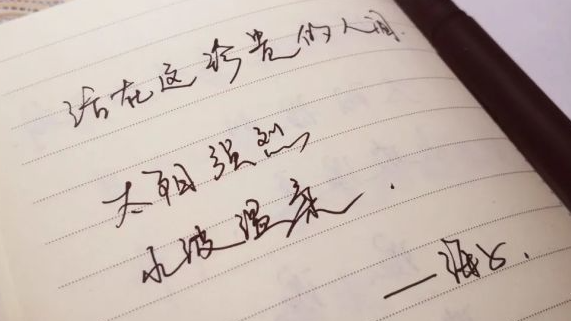 活在这珍贵的人间
太阳强烈
水波温柔.
——海子.